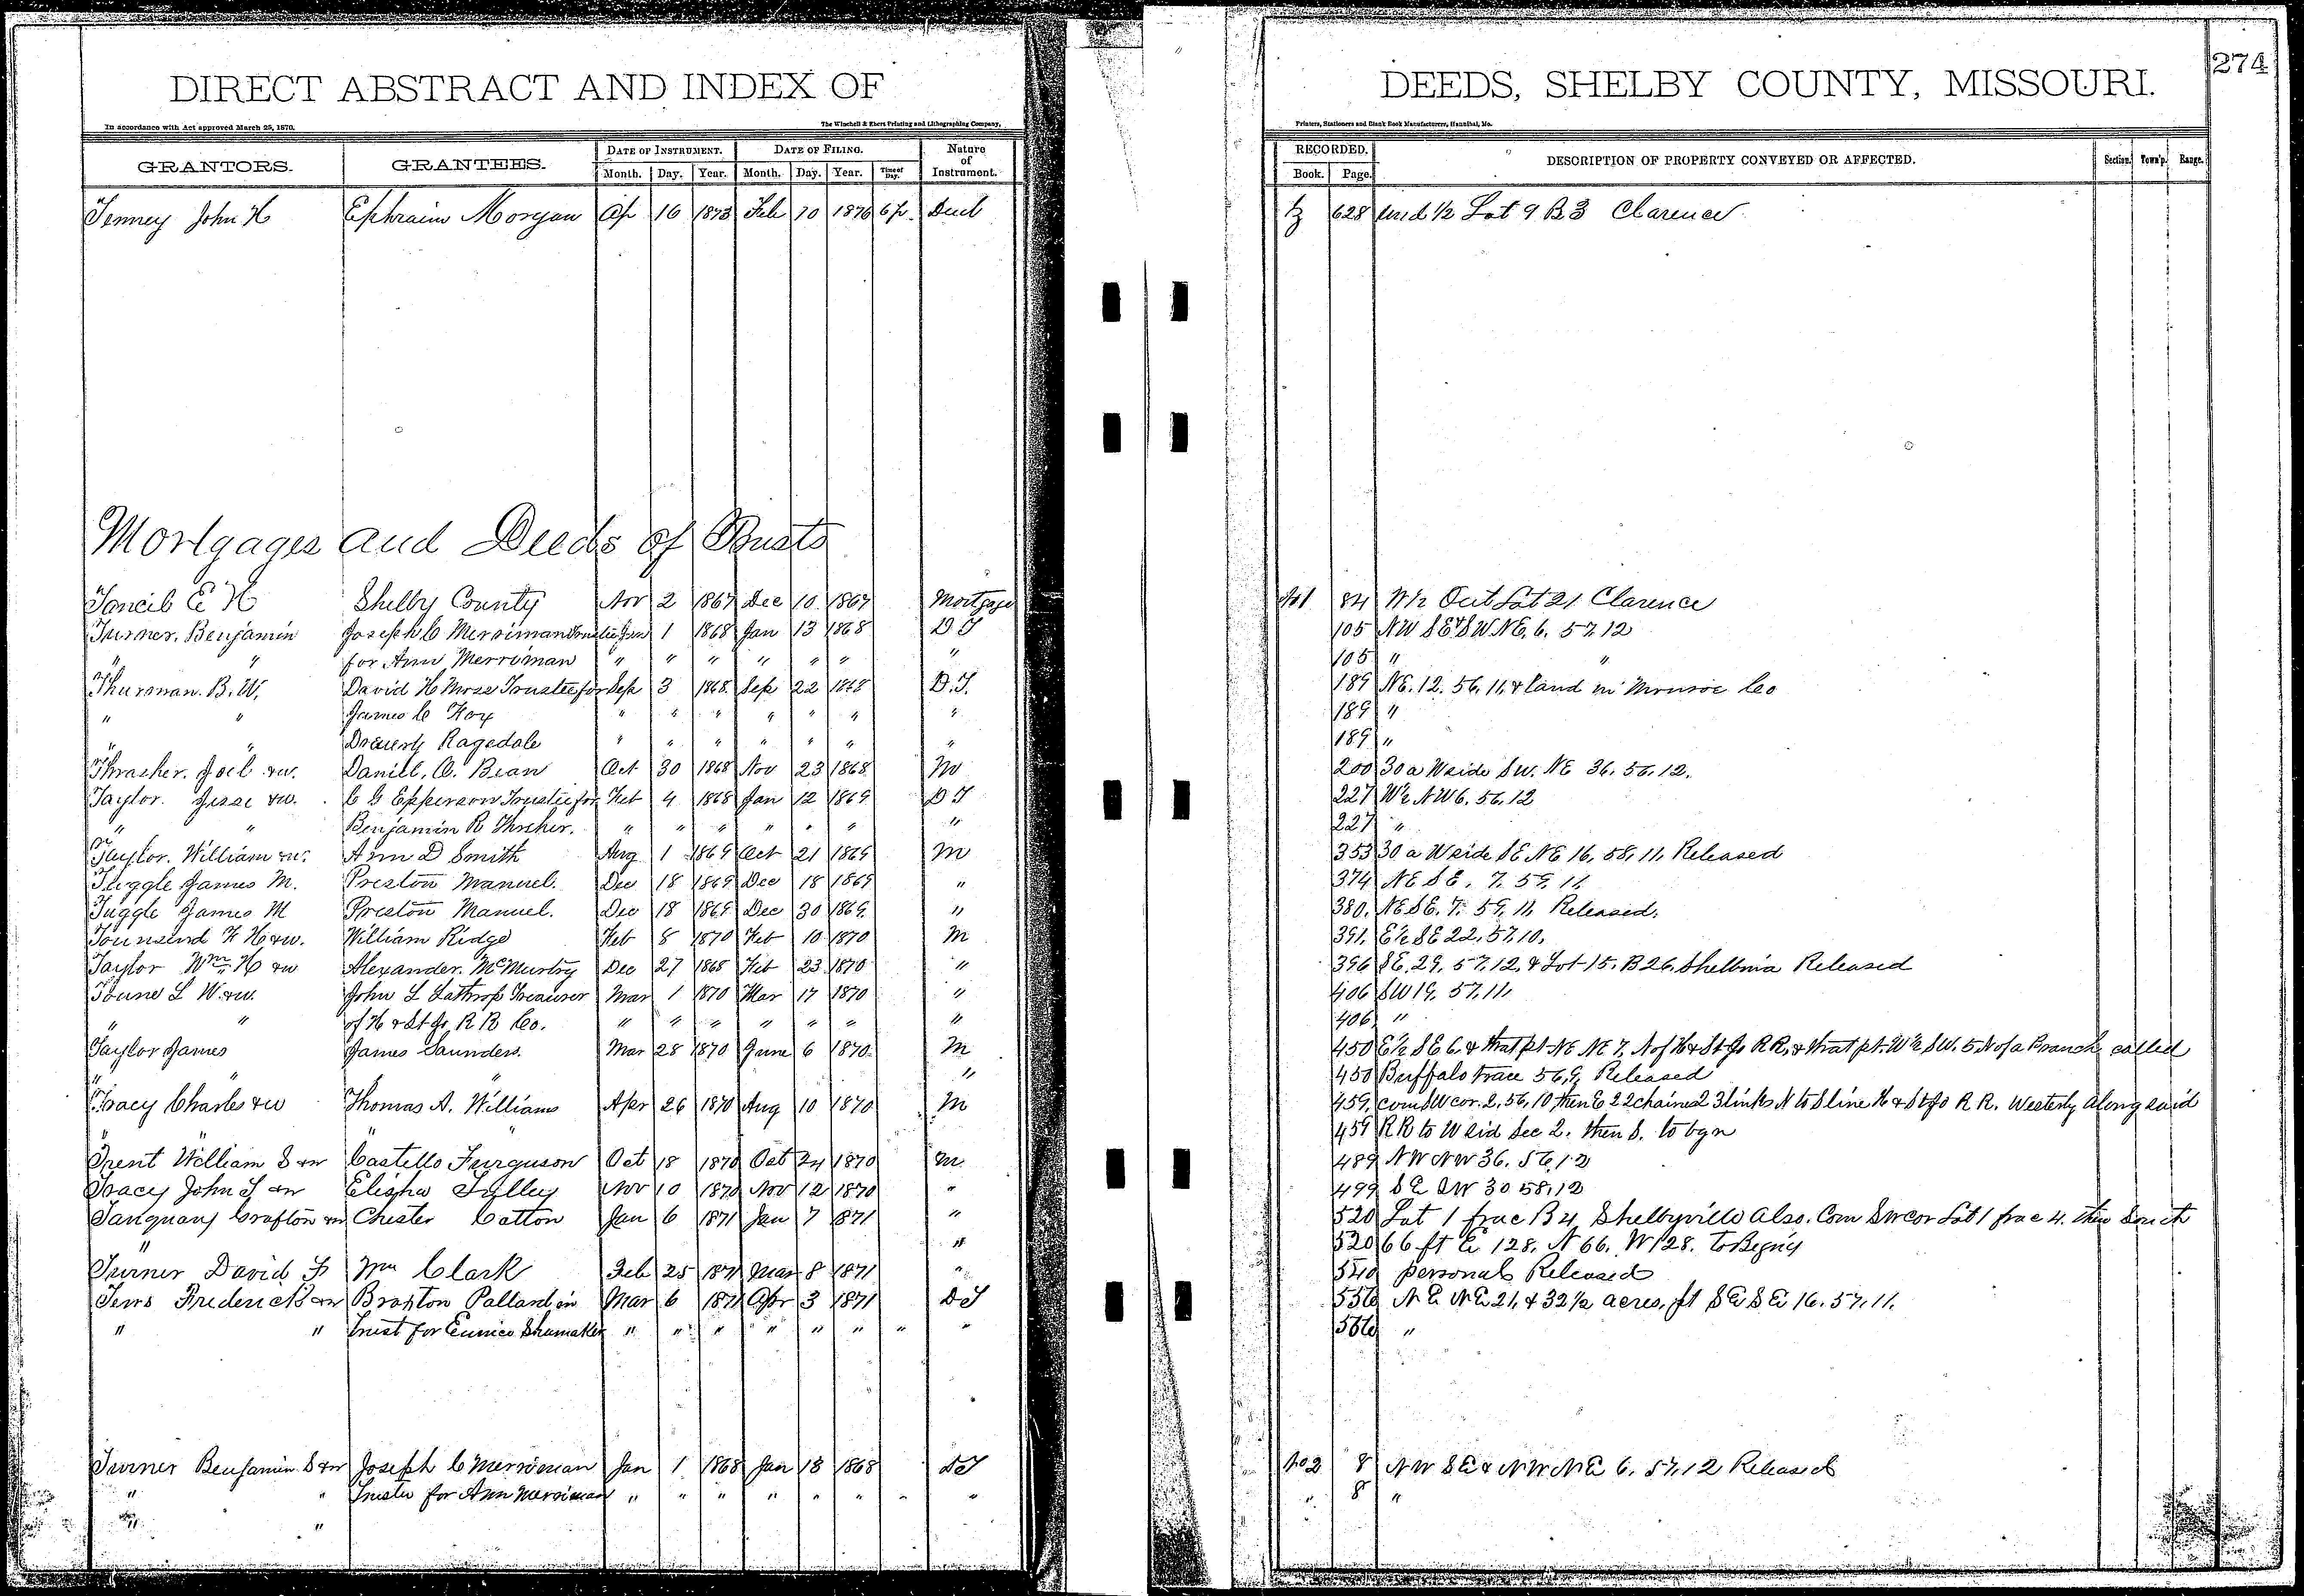 274
DIRECT ABSTRACT AND INDEX OF DEEDS, SHELBY COUNTY, MISSOURI.
In accordance with Act approved March 25, 1870. The Winchell & Ebert Printing and Lithographing Company, Printers, Stationers and Blank Book Manufacturers, Hannibal, Mo.
GRANTORS. GRANTEES. DATE OF INSTRUMENT. DATE OF FILING. Nature of Instrument. RECORDED. DESCRIPTION OF PROPERTY CONVEYED OR AFFECTED. Section. Town'p. Range.
Month. Day. Year. Month. Day. Year. Time of Day. Book. Page.
Tenney John H Ephraim Morgan Ap 16 1873 Feb 10 1876 6 p. Deed 628 und 1/2 Lot 9 B 3 Clarence
Mortgages and Deeds of Trusts
Toncib E H Shelby County Nov 2 1867 Dec 10 1867 Mortgage No 1 84 N 1/2 Out Lot 21 Clarence
Turner. Benjamin Joseph C Merriman Trustee Jan 1 1868 Jan 13 1868 D T 105 NW SE & SW NE. 6. 57. 12
" " for Ann Merriman " " " " " " " 105 " "
Thurman. B. W. David H Moss Trustee for Sep 3 1868 Sep 22 1868 D. T. 189 NE. 12. 56. 11. & land in Monroe Co
" " James C Fox " " " " " " " 189 "
" " Ragsdale " " " " " " " 189 "
Thrasher. Joel & w. Daniel. O. Bean Oct 30 1868 Nov 23 1868 M 200 30 a W side SW. NE 36. 56. 12.
Taylor. Jesse & w. C G Epperson Trustee for Feb 4 1868 Jan 12 1869 D T 227 W 1/2 NW 6. 56. 12
" " Benjamin R " " " " " " " 227 "
Taylor. William & w. Ann D Smith Aug 1 1869 Oct 21 1869 M 353 30 a W side SE NE 16. 58. 11. Released
Tuggle James M. Preston Manuel. Dec 18 1869 Dec 18 1869 " 374 NE SE. 7. 59. 11
Tuggle James M Preston Manuel. Dec 18 1869 Dec 30 1869 " 380. NE SE. 7. 59. 11. Released.
Tounsend F H & w. William Ridge Feb 8 1870 Feb 10 1870 M 391. E 1/2 SE 22. 57. 10.
Taylor Wm. H & w Alexander. McMurtry Dec 27 1868 Feb 23 1870 " 396 SE. 29. 57. 12. & Lot 15. B 26. Shelbina Released
Toune L W & w. John L Lathrop Treasurer Mar 1 1870 Mar 17 1870 " 406 SW 19. 57. 11.
" " of H & St Jo. R R Co. " " " " " " " 406 "
Taylor James James Saunders. Mar 28 1870 June 6 1870. M 450 E 1/2 SE 6. & that pt NE NE 7. N of H & St Jo R R. & that pt. W 1/2 SW. 5 N of a Branch called
" " " 450 Buffalo trace 56. 9. Released
Tracy Charles & w Thomas A. Williams Apr 26 1870 Aug 10 1870 M 459. com SW cor. 2. 56. 10 then E 22 chains 23 links N to S line H & St Jo R R. Westerly along said
459 R R to W sid Sec 2. then S. to bgn
Trent William S & w Castello Furguson Oct 18 1870 Oct 24 1870 M. 489 NW NW 36. 56. 12
Tracy John T & w Elisha Nov 10 1870 Nov 12 1870 " 499 SE SW 30 58. 12
Tanquary Crafton & w Chester Cotton Jan 6 1871 Jan 7 1871 " 520 Lot 1 frac B 4 Shelbyville Also. Com SW cor Lot 1 frac 4. then South
" " 520 66 ft E 128. N 66. W 128. to Begn'g
Turner David F Wm Clark Feb 25 1871 Mar 8 1871 " 540 personal Released
Tews Frederick & w Braxton Pollard in Mar 6 1871 Apr 3 1871 D T 556 NE NE 21. & 32 1/2 acres. pt SE SE 16. 57. 11.
" " trust for Eunice Shumaker " " " " " " " " 556 "
Turner Benjamin S & w Joseph C Merriman Jan 1 1868 Jan 13 1868 D T No 2 8 NW SE & NW NE 6. 57. 12 Released
" " Trustee for Ann Merriman " " " " " " " " " 8 "
" "